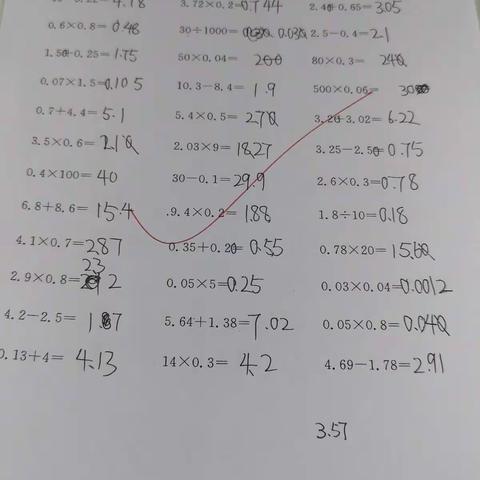 4.18 3.72×0.2=0.744 2.40+0.65=3.05
0.6×0.8=0.48 30÷1000= 0.030 2.5-0.4=2.1
1.50+0.25=1.75 50×0.04= 200 80×0.3= 240
0.07×1.5=0.105 10.3-8.4= 1.9 500×0.06= 30
0.7+4.4=5.1 5.4×0.5=2.70 3.20+3.02=6.22
3.5×0.6=2.10 2.03×9=18.27 3.25-2.50=0.75
0.4×100=40 30-0.1=29.9 2.6×0.3=0.78
6.8+8.6=15.4 9.4×0.2=1.88 1.8÷10=0.18
4.1×0.7=2.87 0.35+0.20=0.55 0.78×20=15.60
2.9×0.8=2.32 0.05×5=0.25 0.03×0.04=0.0012
4.2-2.5= 1.7 5.64+1.38=7.02 0.05×0.8=0.040
0.13+4= 4.13 14×0.3= 4.2 4.69-1.78=2.91
3.57